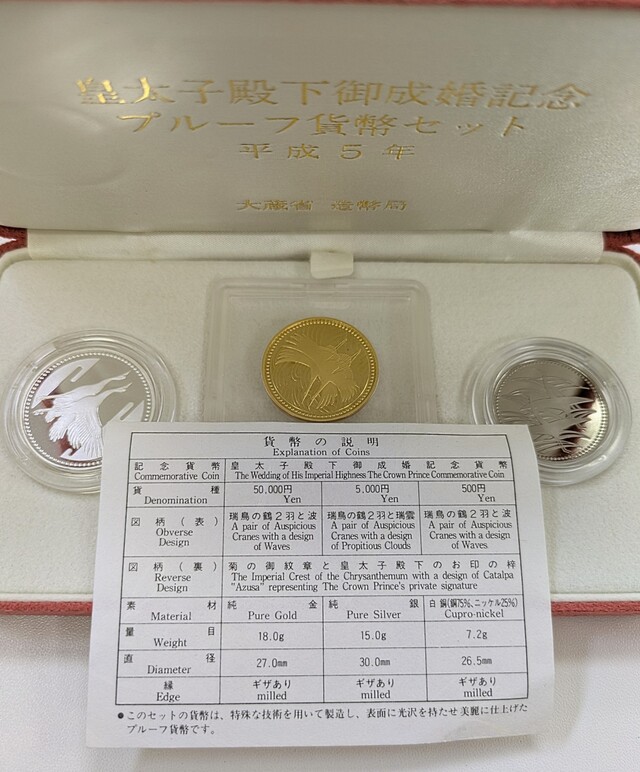 皇太子殿下御成婚記念
プルーフ貨幣セット
平成5年
大蔵省 造幣局
貨幣の説明
Explanation of Coins
記念貨幣 皇太子殿下御成婚記念貨幣
Commemorative Coin The Wedding of His Imperial Highness The Crown Prince Commemorative Coin
貨種 50,000円 5,000円 500円
Denomination Yen Yen Yen
図柄(表) 瑞鳥の鶴2羽と波 瑞鳥の鶴2羽と瑞雲 瑞鳥の鶴2羽と波
Obverse A pair of Auspicious A pair of Auspicious A pair of Auspicious
Design Cranes with a design Cranes with a design Cranes with a design
of Waves of Propitious Clouds of Waves
図柄(裏) 菊の御紋章と皇太子殿下のお印の梓
Reverse The Imperial Crest of the Chrysanthemum with a design of Catalpa
Design "Azusa" representing The Crown Prince's private signature
素材 純金 純銀 白銅(銅75%、ニッケル25%)
Material Pure Gold Pure Silver Cupro-nickel
量目 18.0g 15.0g 7.2g
Weight
直径 27.0mm 30.0mm 26.5mm
Diameter
縁 ギザあり ギザあり ギザあり
Edge milled milled milled
●このセットの貨幣は、特殊な技術を用いて製造し、表面に光沢を持たせ美麗に仕上げた
プルーフ貨幣です。